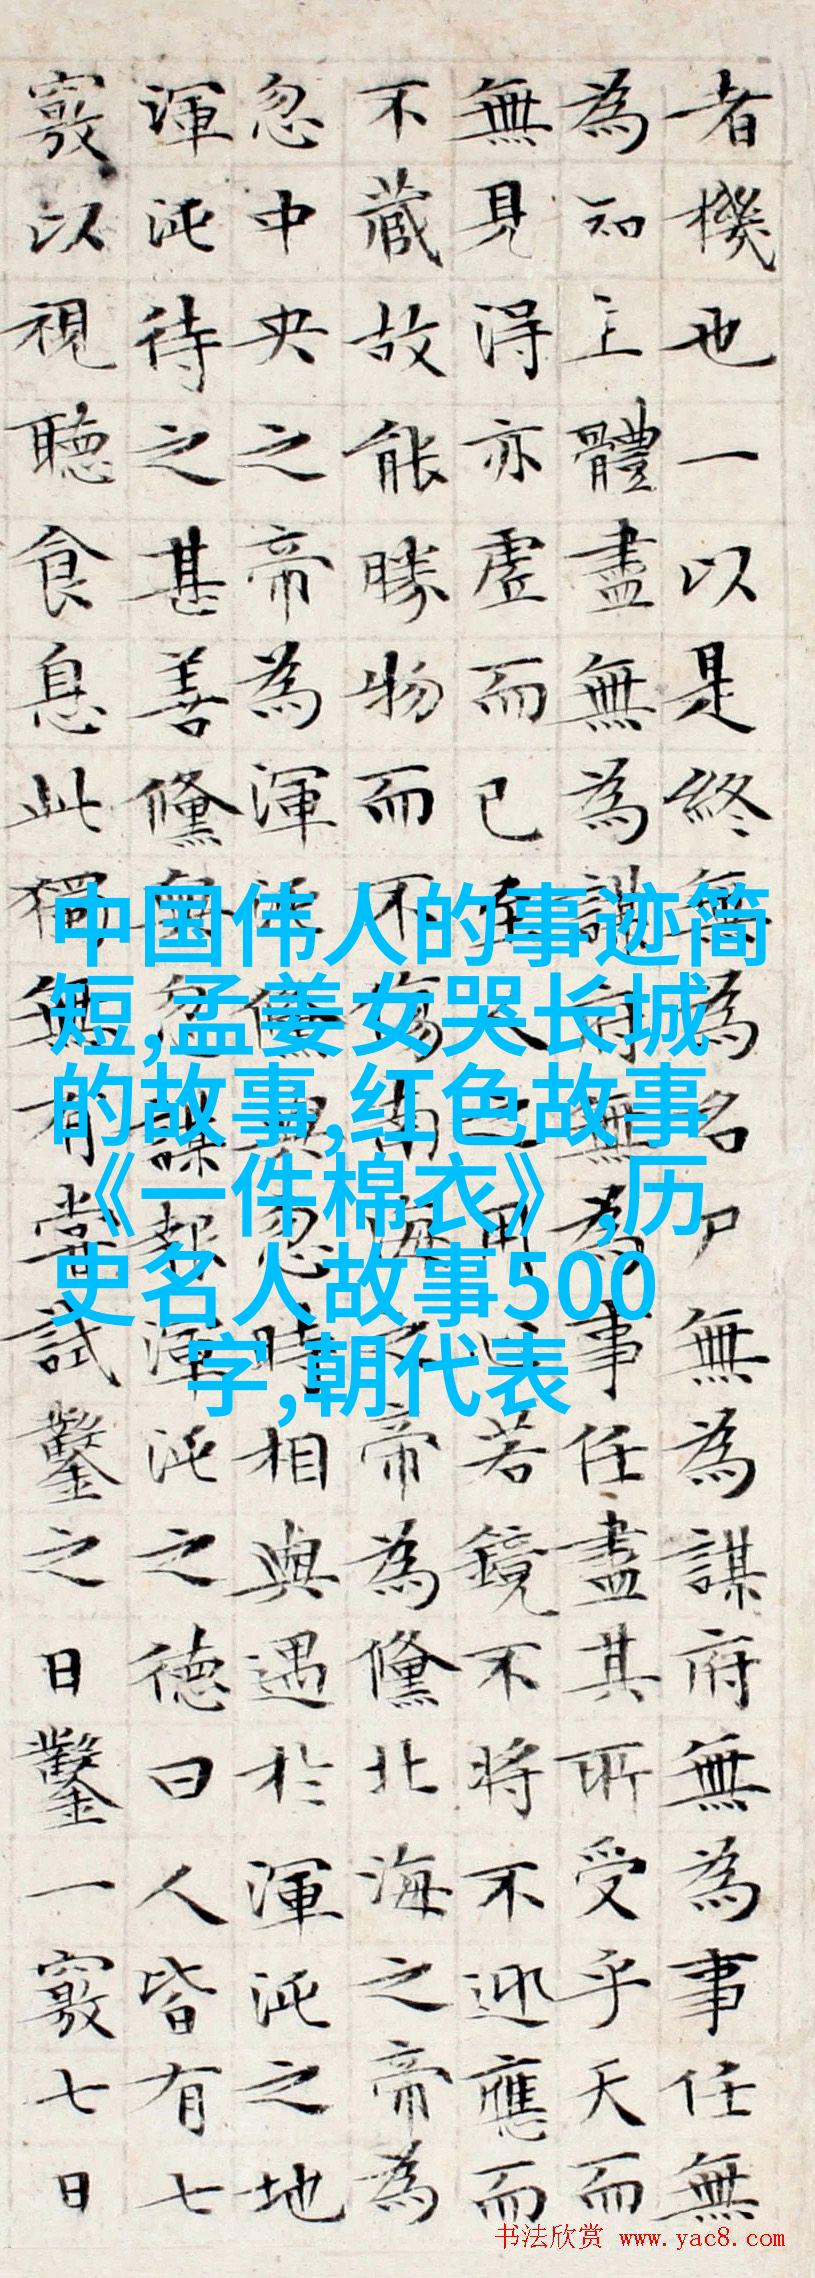 者機也一以是終無為名尸無為謀府無為事任無
為知主體盡無為謀府無為事任盡其所受乎天而
無見得亦虛而已至人之用心若鏡不將不迎應而
不藏故能勝物而不傷南海之帝為儵北海之帝為
忽中央之帝為渾沌儵與忽時相與遇於渾沌之地
渾沌待之甚善儵與忽謀報渾沌之德曰人皆有七
竅以視聽食息此獨無有嘗試鑿之日鑿一竅七日
中国伟人的事迹简
短,孟姜女哭长城
的故事,红色故事
《一件棉衣》,历
史名人故事500
字,朝代表
书法欣赏 www.yac8.com